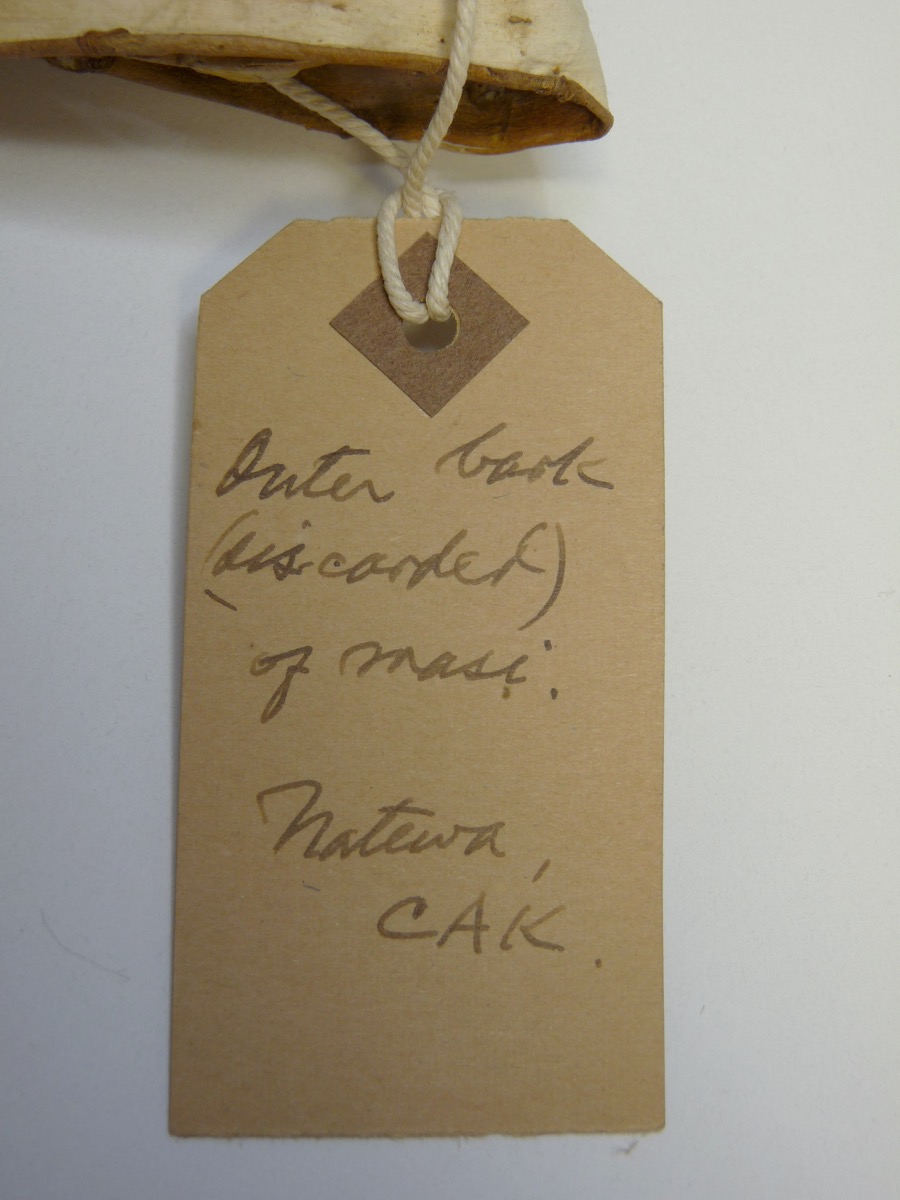 Outer bark
(discarded)
of masi.
Natewa,
CAK.